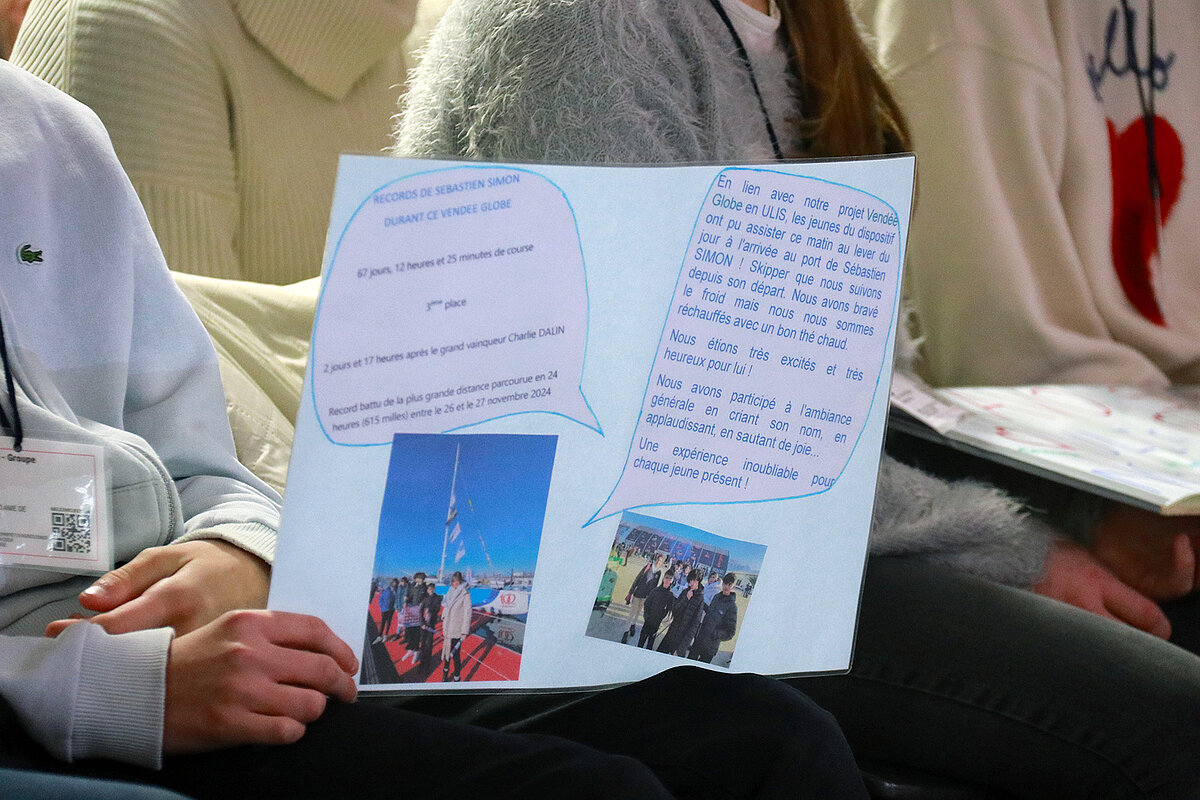 RECORDS DE SEBASTIEN SIMON
DURANT CE VENDEE GLOBE
67 jours, 12 heures et 25 minutes de course
3ème place
2 jours et 17 heures après le grand vainqueur Charlie DALIN
Record battu de la plus grande distance parcourue en 24
heures (615 milles) entre le 26 et le 27 novembre 2024
En lien avec notre projet Vendée
Globe en ULIS, les jeunes du dispositif
ont pu assister ce matin au lever du
jour à l'arrivée au port de Sébastien
SIMON ! Skipper que nous suivons
depuis son départ. Nous avons bravé
le froid mais nous nous sommes
réchauffés avec un bon thé chaud.
Nous étions très excités et très
heureux pour lui !
Nous avons participé à l'ambiance
générale en criant son nom, en
applaudissant, en sautant de joie...
Une expérience inoubliable pour
chaque jeune présent !
- Groupe